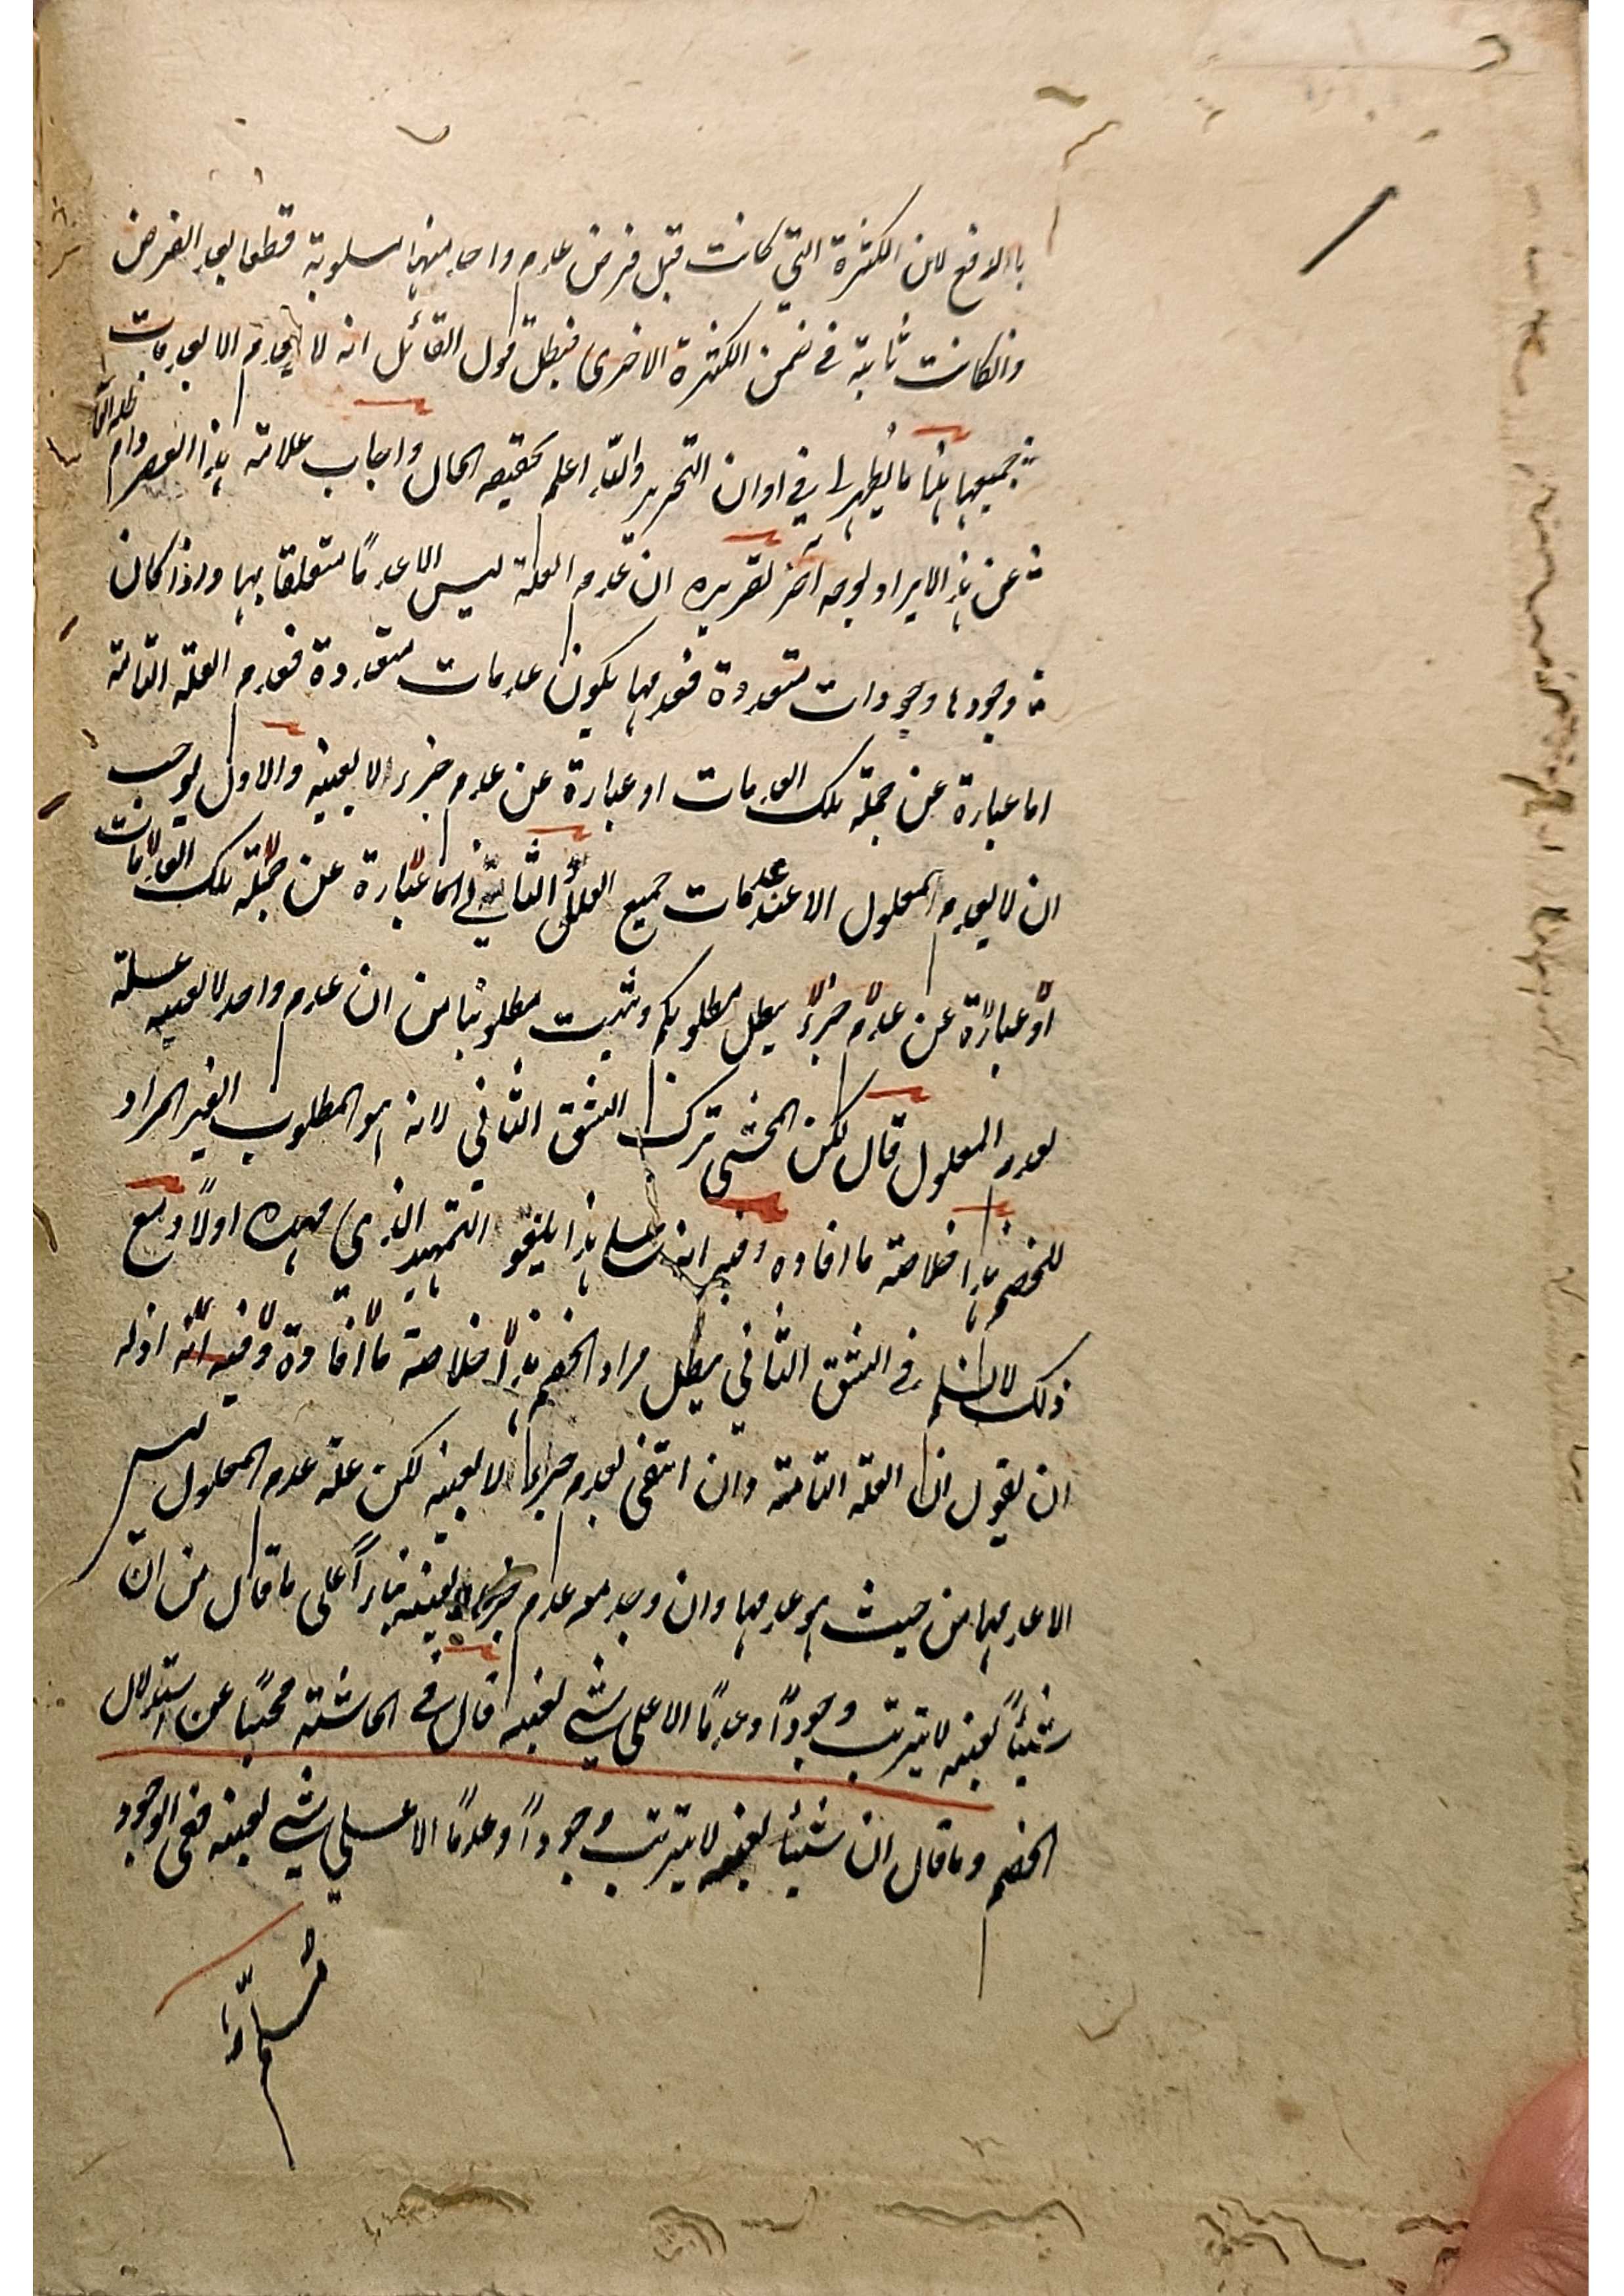 بالا رفع لان الكثرة التي كانت قبل فرض عدم واحد منها مسلوبة قطعا بعد الفرض
وانكانت ثابتة في ضمن الكثرة الاخرى فبطل قول القائل انه لا يعدم الا بعدمات
جميعها هذا ما يظهر لي في اوان التحرير والله اعلم بحقيقة الحال واجاب علامة هذا العصر دام ظله العالي
عن هذا الايراد بوجه آخر تقريره ان عدم العلة ليس الا عدما متعلقا بها واذا كان
وجودها وجودات متعددة فعدمها يكون عدمات متعددة فعدم العلة التامة
اما عبارة عن جملة تلك العدمات او عبارة عن عدم جزء لا بعينه والاول يوجب
ان لا يعدم المعلول الا عند عدمات جميع العلل والثاني اما عبارة عن جملة تلك العدمات
او عبارة عن عدم جزء يبطل مطلوبكم ويثبت مطلوبنا من ان عدم واحد لا بعينه علة
لعدم المعلول قال لكن المحشي ترك الشق الثاني لانه هو المطلوب الغير المراد
للخصم هذا خلاصة ما افاده وفيه انه على هذا يلغو التمهيد الذي مهده اولا ومع
ذلك لا نسلم في الشق الثاني يبطل مراد الخصم هذا خلاصة ما افاده وفيه انه اذ له
ان يقول ان العلة التامة وان انتفى بعدم جزء لا بعينه لكن علة عدم المعلول ليس
الا عدمها من حيث هو عدمها وان وجد معه عدم جزء لا بعينه بناءً على ما قال من ان
شيئًا بعينه لا يترتب وجودًا وعدمًا الا على شي بعينه قال في الحاشية مجيبًا عن استدلال
الخصم وما قال ان شيئا بعينه لا يترتب وجودًا وعدمًا الا على شي بعينه ففي الوجود